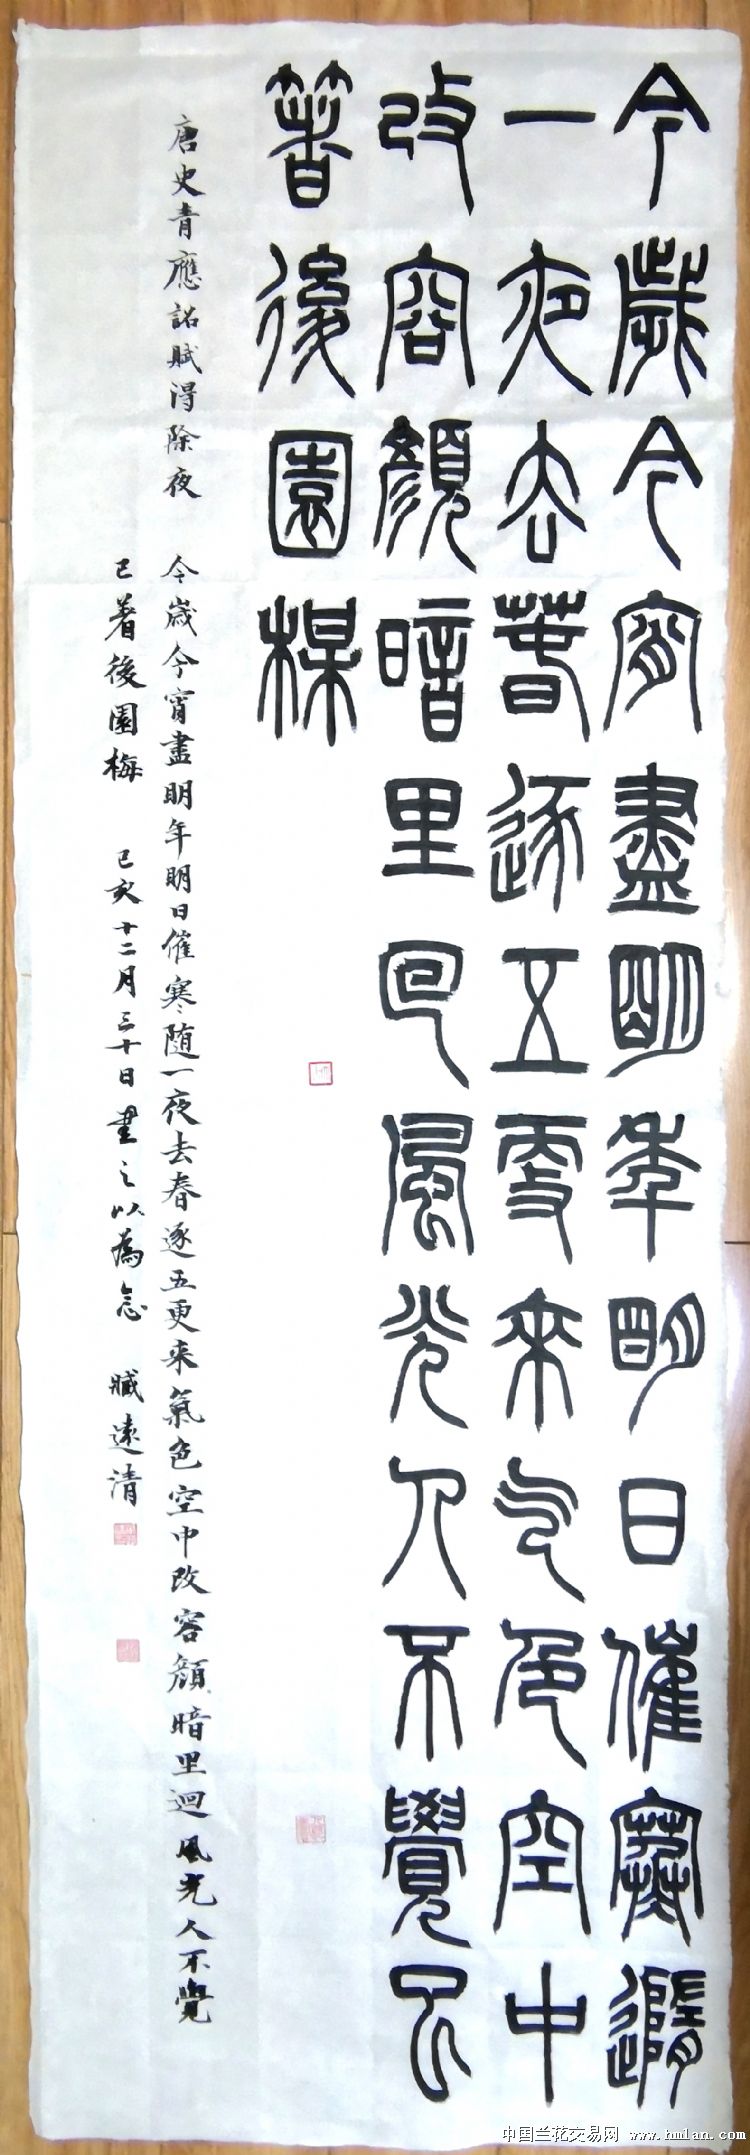 今歲今宵盡明年明日催寒隨
一夜去春逐五更來气色空中
改容顏暗里回風光人不覺已
著後園楳
唐史青應詔賦得除夜
今歲今宵盡明年明日催寒随一夜去春逐五更来氣色空中改容顔暗里迴風光人不覺
已着後園梅 己亥十二月三十日書之以為念 臧遠清
中国兰花交易网 www.hmlan.com